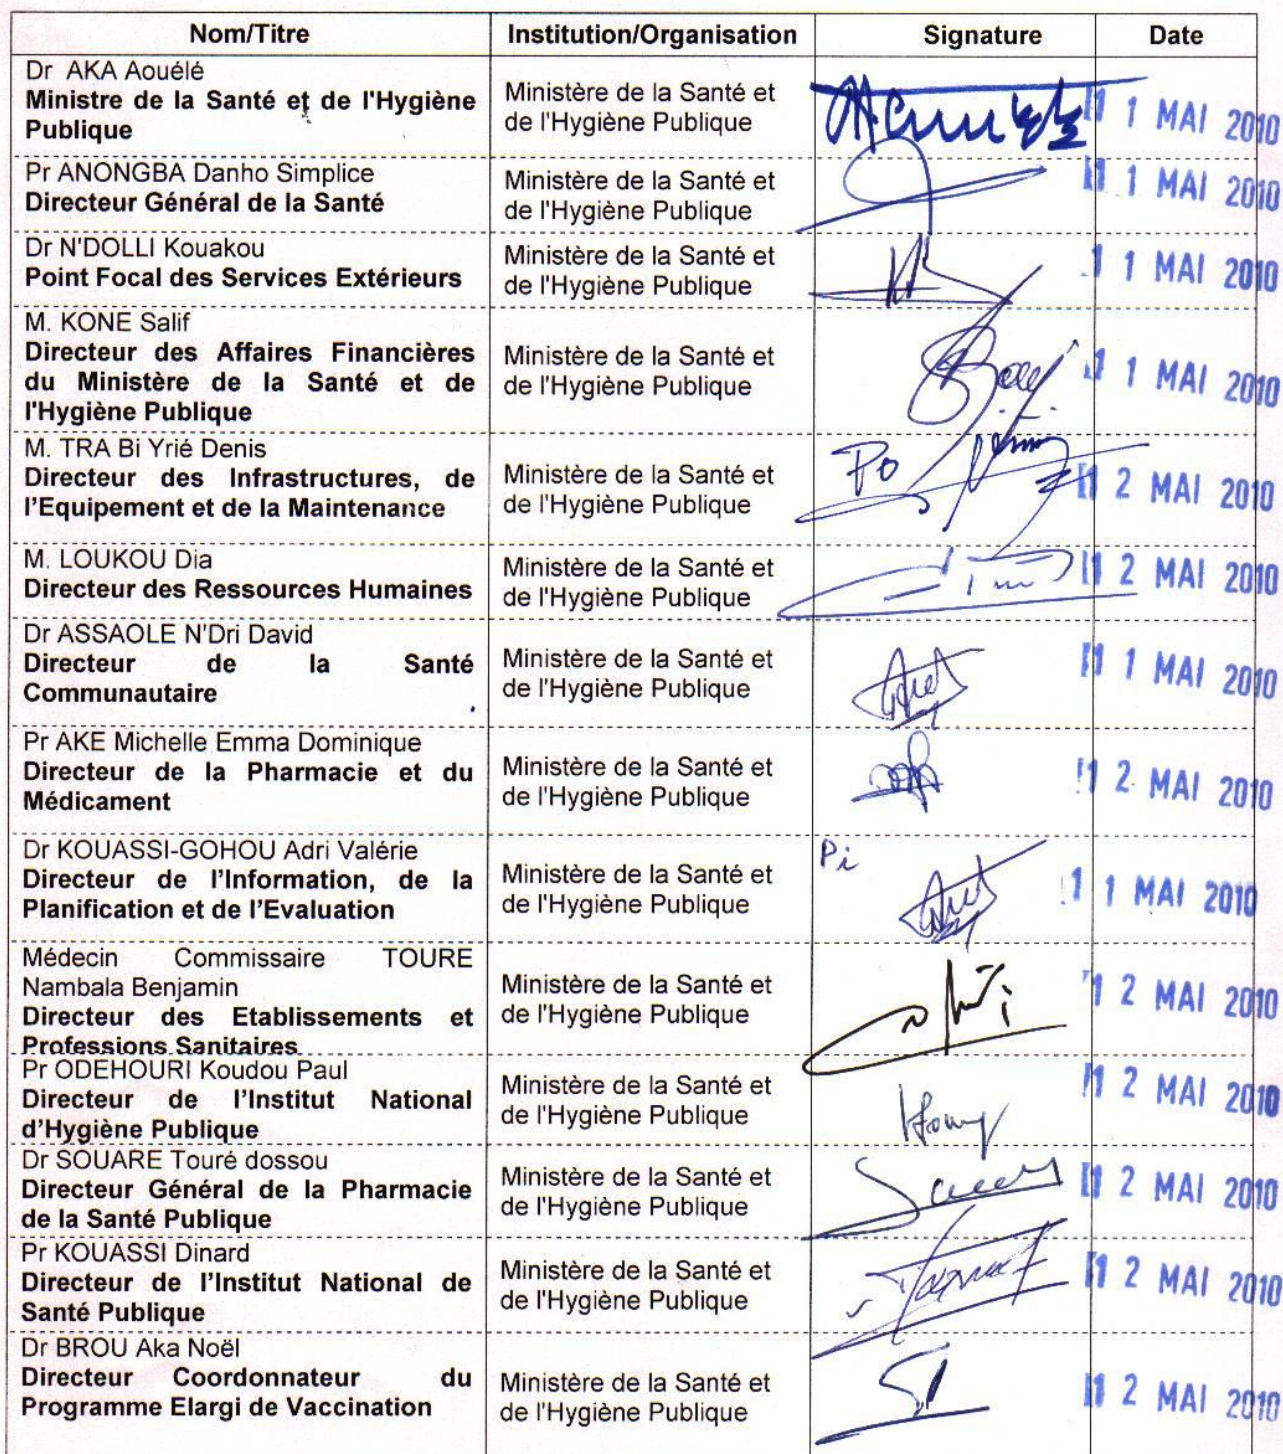 Nom/Titre Institution/Organisation Signature Date
Dr AKA Aouélé
Ministre de la Santé et de l'Hygiène
Publique
Ministère de la Santé et
de l'Hygiène Publique
11 MAI 2010
Pr ANONGBA Danho Simplice
Directeur Général de la Santé
Ministère de la Santé et
de l'Hygiène Publique
11 MAI 2010
Dr N'DOLLI Kouakou
Point Focal des Services Extérieurs
Ministère de la Santé et
de l'Hygiène Publique
11 MAI 2010
M. KONE Salif
Directeur des Affaires Financières
du Ministère de la Santé et de
l'Hygiène Publique
Ministère de la Santé et
de l'Hygiène Publique
11 MAI 2010
M. TRA Bi Yrié Denis
Directeur des Infrastructures, de
l'Equipement et de la Maintenance
Ministère de la Santé et
de l'Hygiène Publique
Po
12 MAI 2010
M. LOUKOU Dia
Directeur des Ressources Humaines
Ministère de la Santé et
de l'Hygiène Publique
12 MAI 2010
Dr ASSAOLE N'Dri David
Directeur de la Santé
Communautaire
Ministère de la Santé et
de l'Hygiène Publique
11 MAI 2010
Pr AKE Michelle Emma Dominique
Directeur de la Pharmacie et du
Médicament
Ministère de la Santé et
de l'Hygiène Publique
12 MAI 2010
Dr KOUASSI-GOHOU Adri Valérie
Directeur de l'Information, de la
Planification et de l'Evaluation
Ministère de la Santé et
de l'Hygiène Publique
Pi
11 MAI 2010
Médecin Commissaire TOURE
Nambala Benjamin
Directeur des Etablissements et
Professions Sanitaires
Ministère de la Santé et
de l'Hygiène Publique
12 MAI 2010
Pr ODEHOURI Koudou Paul
Directeur de l'Institut National
d'Hygiène Publique
Ministère de la Santé et
de l'Hygiène Publique
12 MAI 2010
Dr SOUARE Touré dossou
Directeur Général de la Pharmacie
de la Santé Publique
Ministère de la Santé et
de l'Hygiène Publique
12 MAI 2010
Pr KOUASSI Dinard
Directeur de l'Institut National de
Santé Publique
Ministère de la Santé et
de l'Hygiène Publique
12 MAI 2010
Dr BROU Aka Noël
Directeur Coordonnateur du
Programme Elargi de Vaccination
Ministère de la Santé et
de l'Hygiène Publique
12 MAI 2010